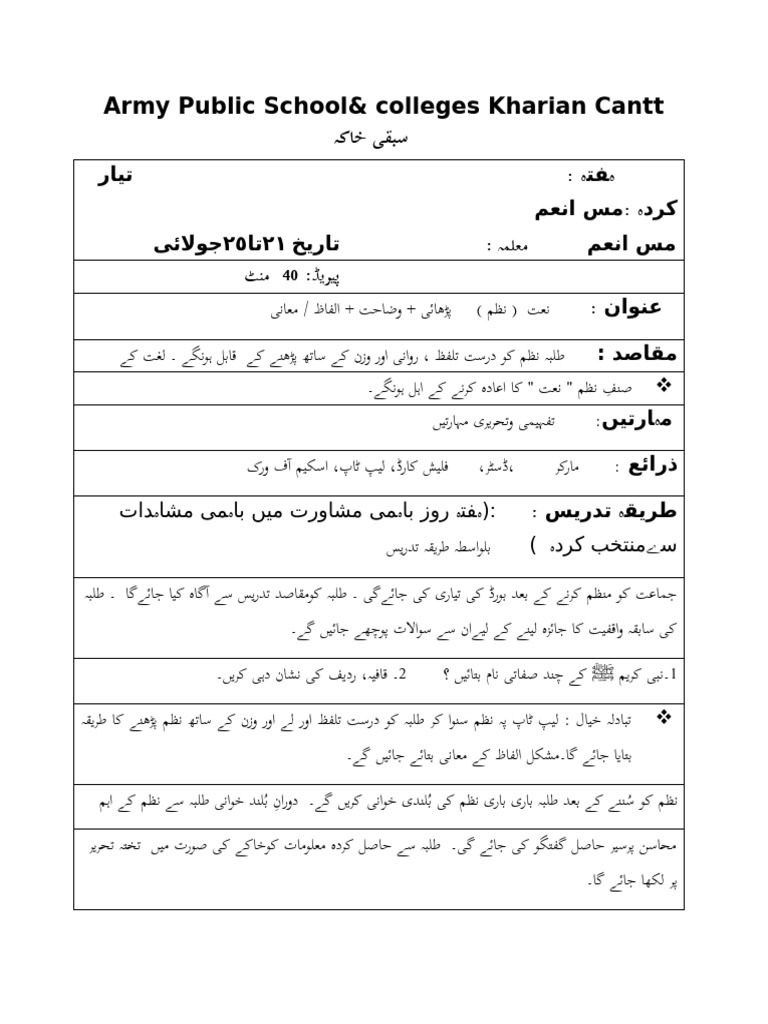 Army Public School& colleges Kharian Cantt
سبقی خاکہ
ہفتہ : تیار
کردہ :مس انعم
مس انعم معلمہ : تاریخ ۲۱تا۲۵جولائی
پیریڈ: 40 منٹ
عنوان : نعت ( نظم ) پڑھائی + وضاحت + الفاظ / معانی
مقاصد : طلبہ نظم کو درست تلفظ ، روانی اور وزن کے ساتھ پڑھنے کے قابل ہونگے ۔ لغت کے
❖ صنفِ نظم " نعت " کا اعادہ کرنے کے اہل ہونگے۔
مہارتیں: تفہیمی وتحریری مہارتیں
ذرائع : مارکر ،ڈسٹر، فلیش کارڈ، لیپ ٹاپ، اسکیم آف ورک
طریقہ تدریس : :(ہفتہ روز باہمی مشاورت میں باہمی مشاہدات
سےمنتخب کردہ ) بلواسطہ طریقہ تدریس
جماعت کو منظم کرنے کے بعد بورڈ کی تیاری کی جائےگی ۔ طلبہ کومقاصد تدریس سے آگاہ کیا جائےگا ۔ طلبہ
کی سابقہ واقفیت کا جائزہ لینے کے لیےان سے سوالات پوچھے جائیں گے۔
1۔نبی کریم ﷺ کے چند صفاتی نام بتائیں ؟ 2۔ قافیہ، ردیف کی نشان دہی کریں۔
❖ تبادلہ خیال : لیپ ٹاپ پہ نظم سنوا کر طلبہ کو درست تلفظ اور لے اور وزن کے ساتھ نظم پڑھنے کا طریقہ
بتایا جائے گا۔مشکل الفاظ کے معانی بتائے جائیں گے۔
نظم کو سُننے کے بعد طلبہ باری باری نظم کی بُلندی خوانی کریں گے۔ دورانِ بُلند خوانی طلبہ سے نظم کے اہم
محاسن پرسیر حاصل گفتگو کی جائے گی۔ طلبہ سے حاصل کردہ معلومات کوخاکے کی صورت میں تختہ تحریر
پر لکھا جائے گا۔